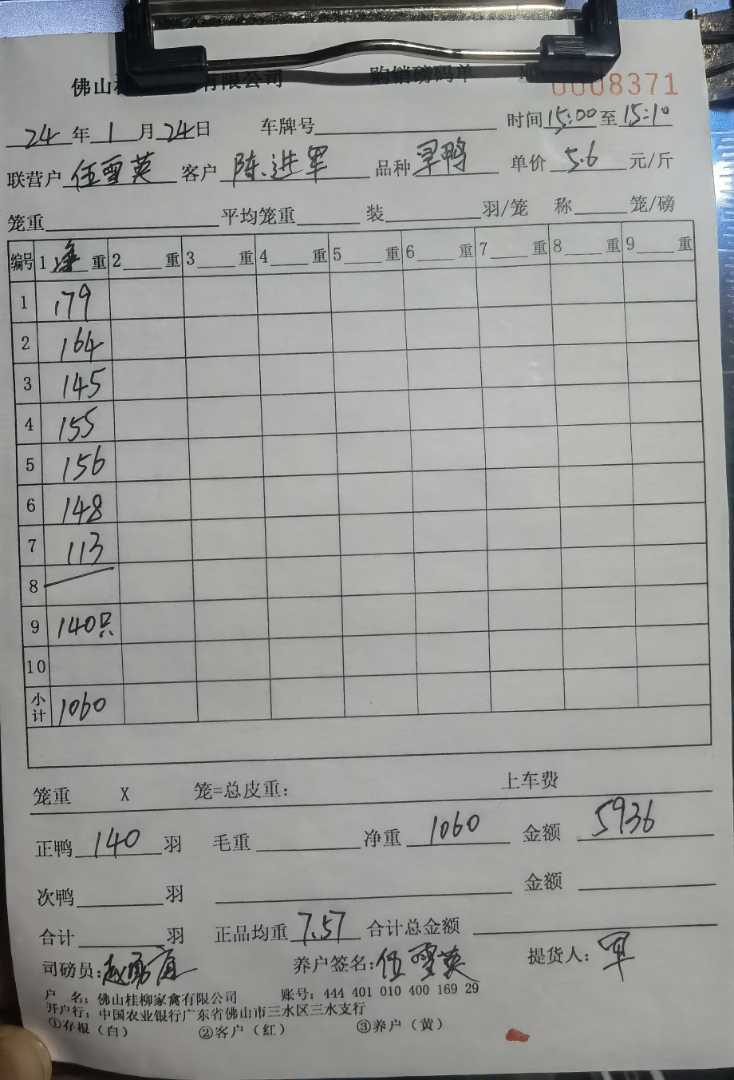 佛山桂 有限公司 购销磅码单 0008371
24年1月24日 车牌号 时间15:00至15:10
联营户 伍雪英 客户 陈进军 品种 旱鸭 单价 5.6 元/斤
笼重 平均笼重 装 羽/笼 称 笼/磅
编号 1 净 重 2 重 3 重 4 重 5 重 6 重 7 重 8 重 9 重
1 179
2 164
3 145
4 155
5 156
6 148
7 113
8
9 140只
10
小计 1060
笼重 X 笼=总皮重: 上车费
正鸭 140 羽 毛重 净重 1060 金额 5936
次鸭 羽 金额
合计 羽 正品均重 7.57 合计总金额
司磅员: 养户签名:伍雪英 提货人: 军
户 名: 佛山桂柳家禽有限公司 账号: 444 401 010 400 169 29
开户行: 中国农业银行广东省佛山市三水区三水支行
①存根(白) ②客户(红) ③养户(黄)